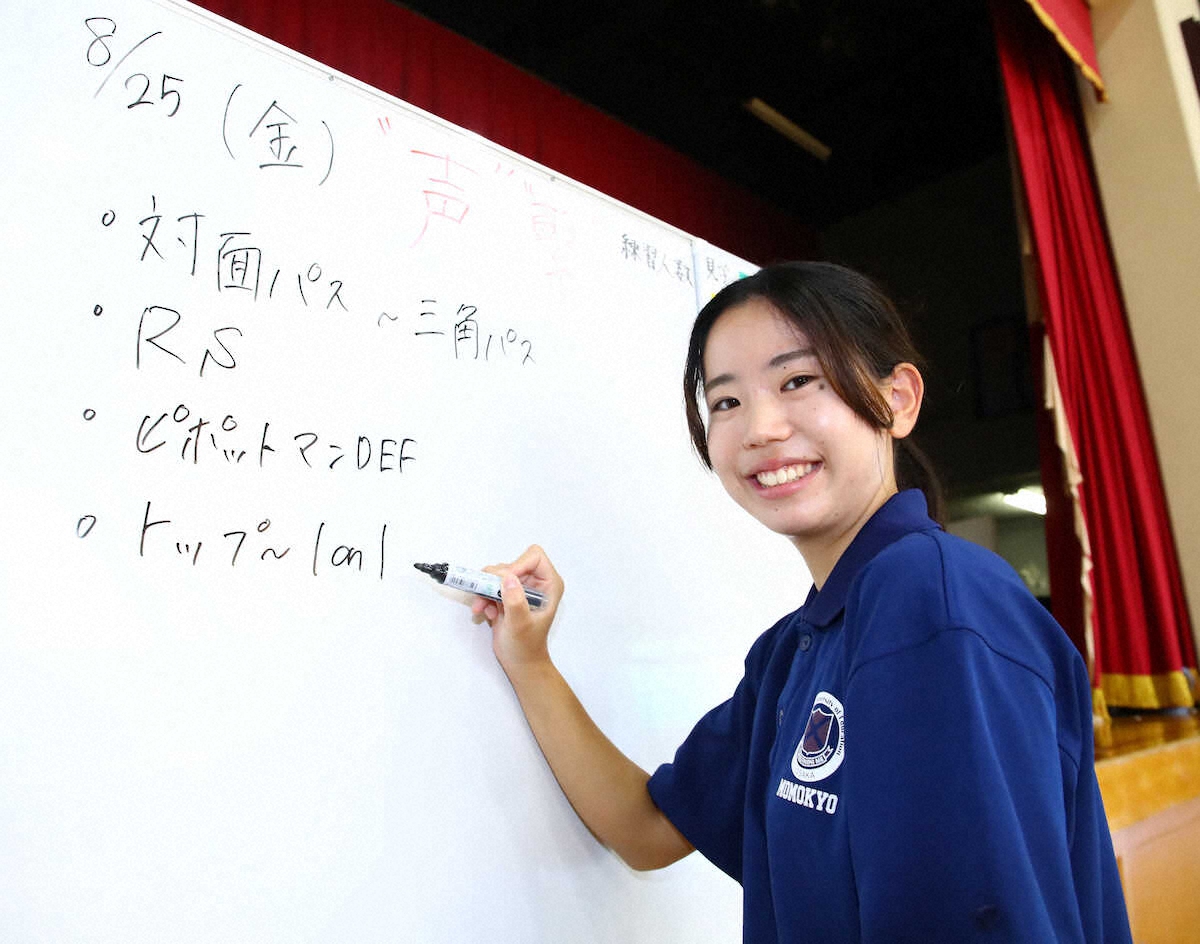 8/25 (金)
"声"
練習人数
・対面パス ~三角パス
・RS
・ピボットマンDEF
・トップ~1on1
SAKA
MOMOKYO